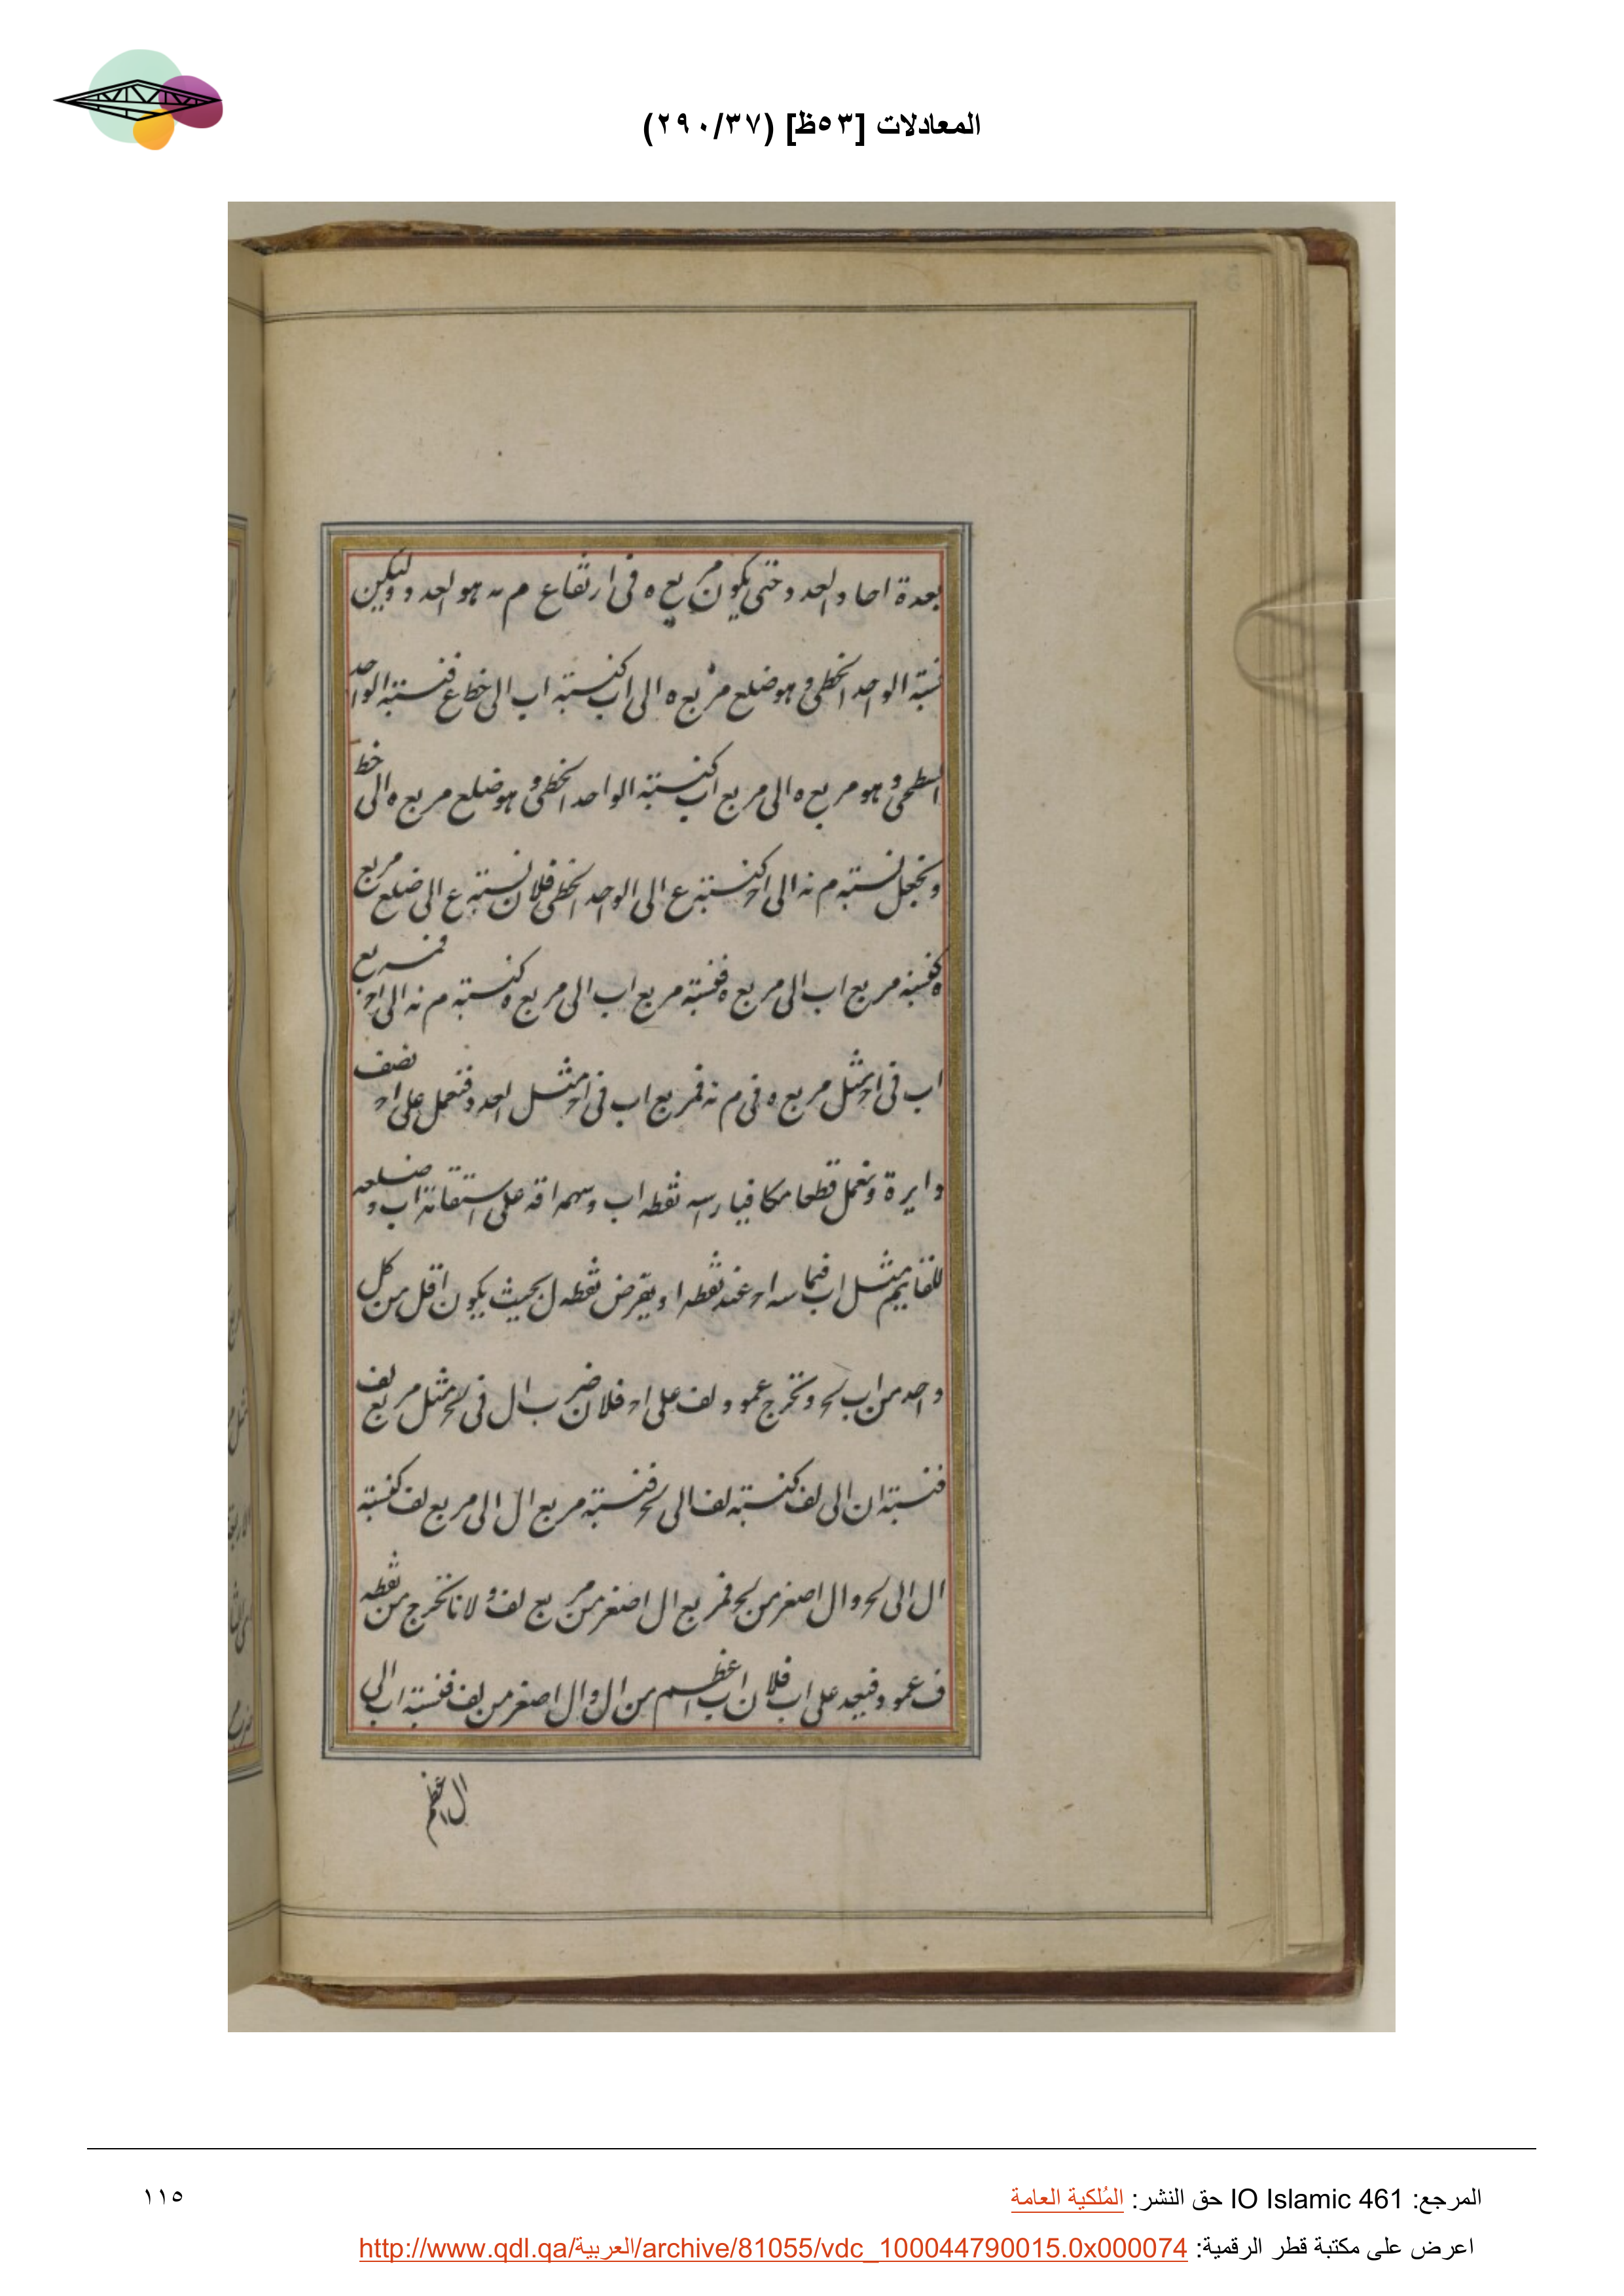 المعادلات [٥٣ظ] (٢٩٠/٣٧)
بعدة احاد العدد حتى يكون مربع ه فى ارتفاع م نه هو العدد وليكن
نسبة الواحد الخطى وهو ضلع مربع ه الى اب كنسبة اب الى خط ع فنسبة الواحد
السطحى وهو مربع ه الى مربع اب كنسبة الواحد الخطى وهو ضلع مربع ه الى خط
ونجعل نسبة م نه الى اح كنسبة ع الى الواحد الخطى فلان نسبة ع الى ضلع مربع
ه كنسبة مربع اب الى مربع ه فنسبة مربع اب الى مربع ه كنسبة م نه الى اح فمربع
اب فى اح مثل مربع ه فى م نه فمربع اب فى اح مثل العدد فنعمل على اح نصف
دايرة ونعمل قطعا مكافيا راسه نقطه اب وسهمه اقه على استقامة اب وضلعه
القايم مثل اب فيماسه اح عند نقطه ا ويفرض نقطه ل بحيث يكون اقل من كل
واحد من اب لح ونخرج عمود لف على اح فلان ضرب ال فى لح مثل مربع لف
فنسبة ان الى لف كنسبة لف الى لح فنسبة مربع ال الى مربع لف كنسبة
ال الى لح وال اصغر من لح فمربع ال اصغر من مربع لف ولانا نخرج من نقطه
ف عمود فيجد على اب فلان اب اعظم من ال وال اصغر من لف فنسبة اب الى
ال اعظم
المرجع: IO Islamic 461 حق النشر: المُلكية العامة
١١٥
اعرض على مكتبة قطر الرقمية: http://www.qdl.qa/العربية/archive/81055/vdc_100044790015.0x000074